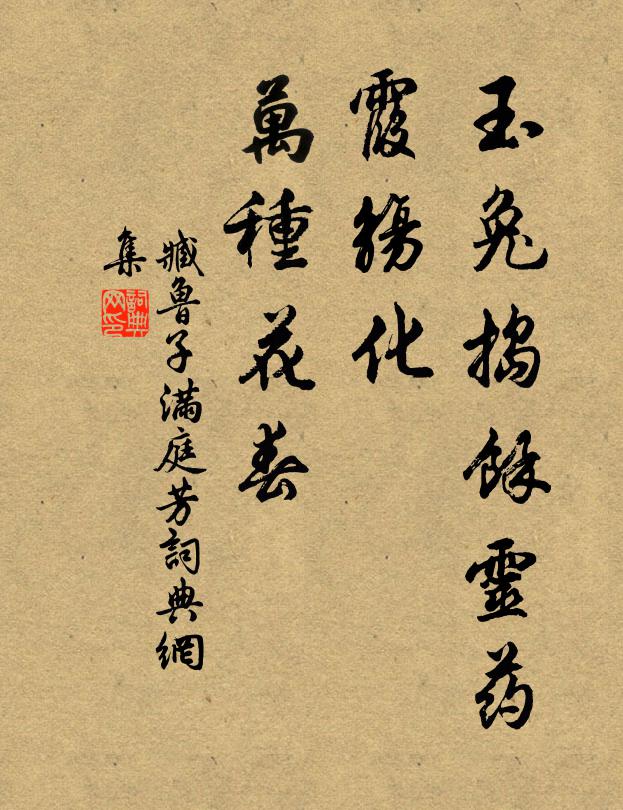 玉兔搗餘靈药
霞觴化
萬種花春
臧魯子滿庭芳詞典網
集
詞典网印